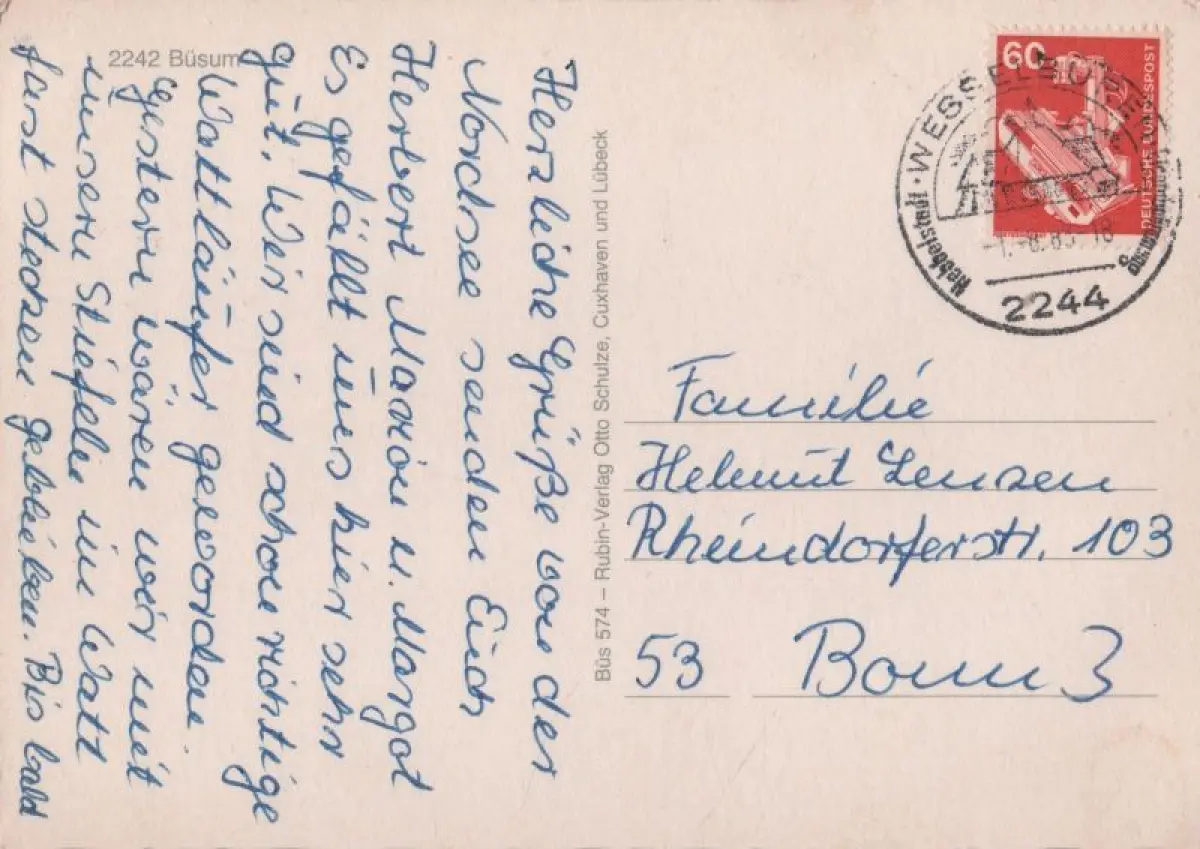 2242 Büsum
Herzliche Grüße von der
Nordsee senden Euch
Herbert Marion u. Margot
Es gefällt uns hier sehr
gut. Wir sind schon richtige
Wattläufer geworden.
Gestern wären wir mit
unsern Stiefeln im Watt
fast stecken geblieben. Bis bald
Büs 574 – Rubin-Verlag Otto Schulze, Cuxhaven und Lübeck
60
DEUTSCHE BUNDESPOST
Hebbelstadt · WESSELBUREN
2244
Familie
Helmut Lenzen
Rheindorferstr. 103
53 Bonn 3